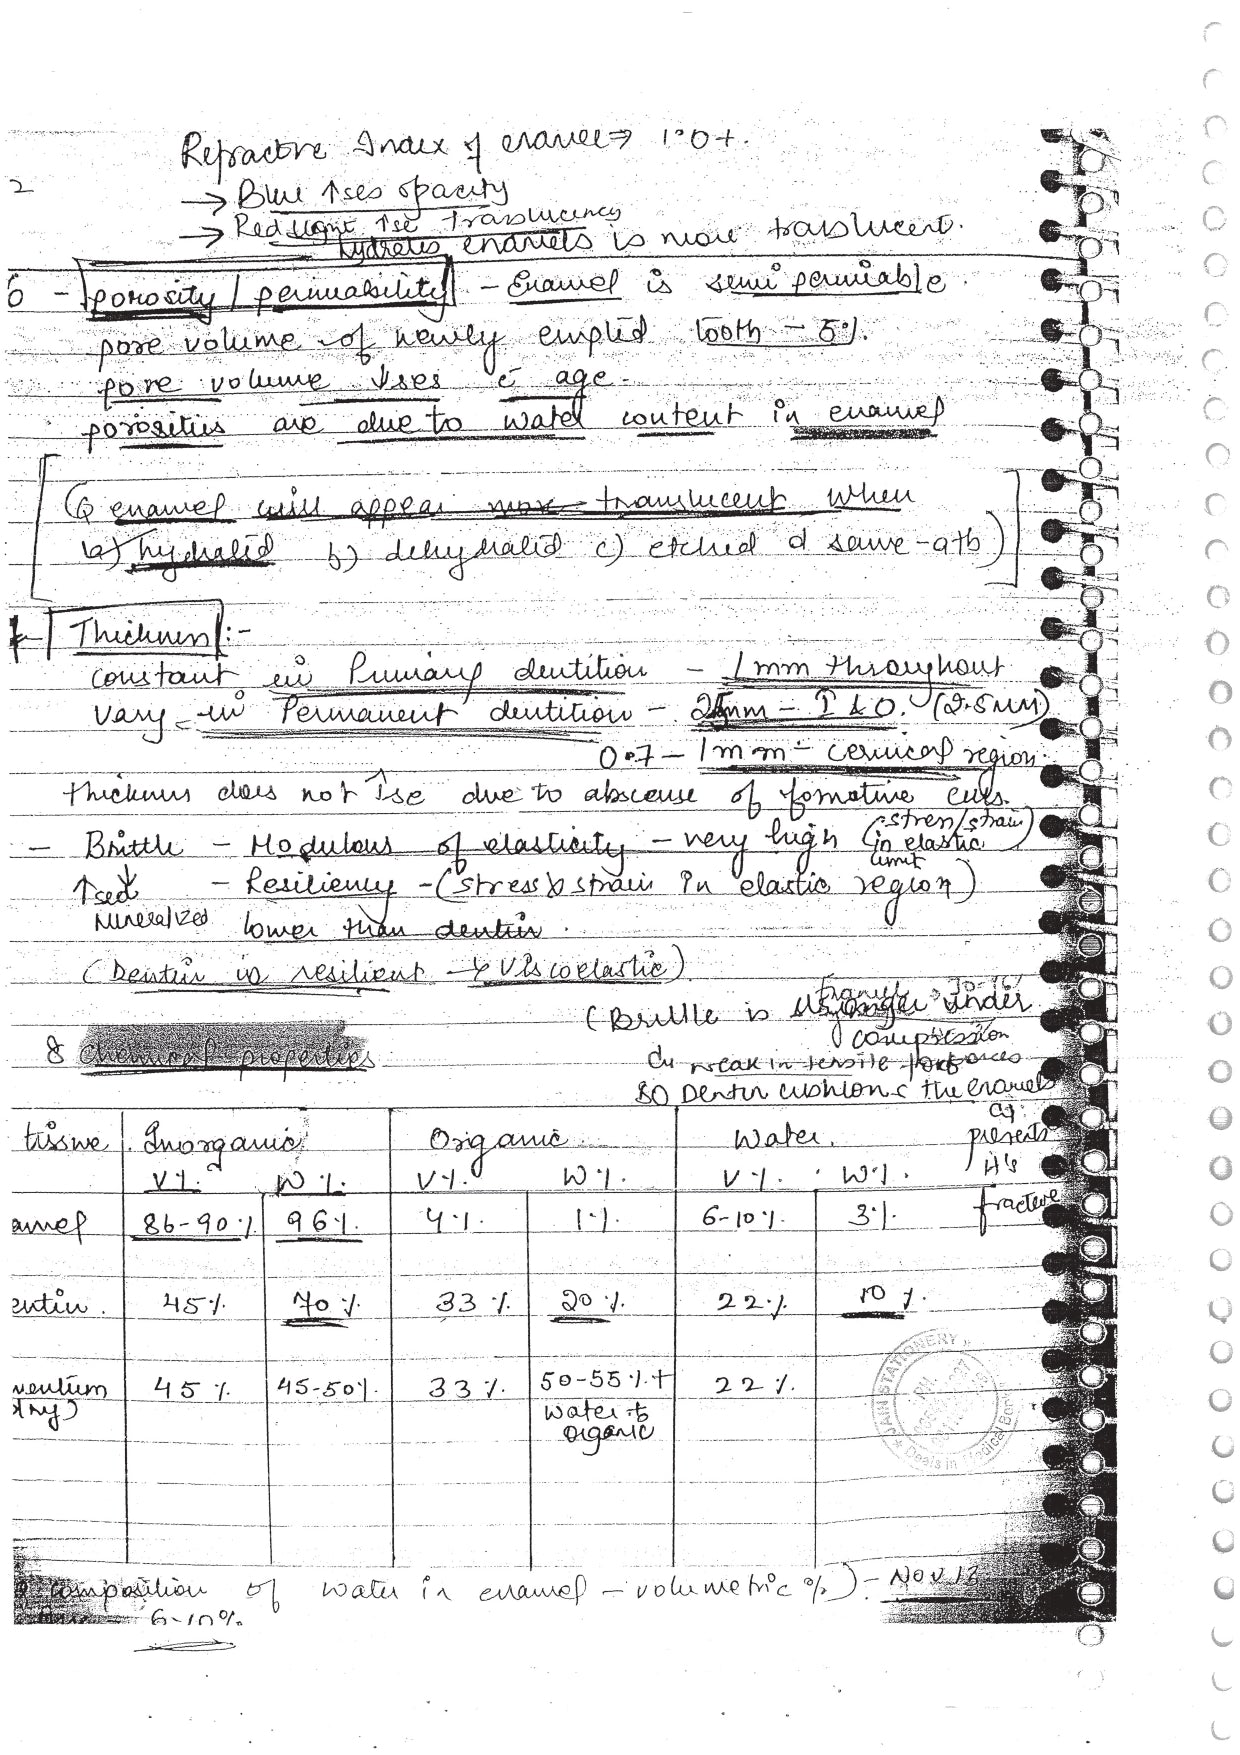 Refractive Index of enamel ⇒ 1.0+.
2
→ Blue ↑ses opacity
→ Red light ↑se translucency
hydretes enamels is more translucent.
6 - porosity / permuability - Enamel is semi permiable.
pore volume of newly empted tooth - 5%.
pore volume ↓ses c̄ age.
porosities are due to water content in enamel
(Q enamel will appear more translucent when
(a) hydratid b) dehydratid c) etched d same - a+b)
Thickness :-
constant in Primary dentition - 1mm throughout
vary in Permanent dentition - 2mm - I & O. (2.5MM)
0.7 - 1mm - cervical region.
thickness does not ↑se due to abscense of formative cells.
- Brittle - Modulous of elasticity - very high (stress/strain) in elastic limit
↑sed mineralized - Resiliency - (stress x strain in elastic region)
lower than dentin.
(Dentin is resilient → Viscoelastic)
(Brittle is stronger under
compression
weak in tensile forces
so Dentin cushions the enamel
& presents
it's
fracture
8 Chemical properties
tissue Inorganic Organic Water.
V% W% V% W% V% W%.
amel 86-90% 96% 4% 1% 6-10% 3%
entin. 45% 70% 33% 20% 22% 10%
mentum 45% 45-50% 33% 50-55% + 22%
dry) water to
organic
JAIN STATIONERY
Deals in Medical Boo
composition of water in enamel - volumetric %) - NOV 13
6-10%